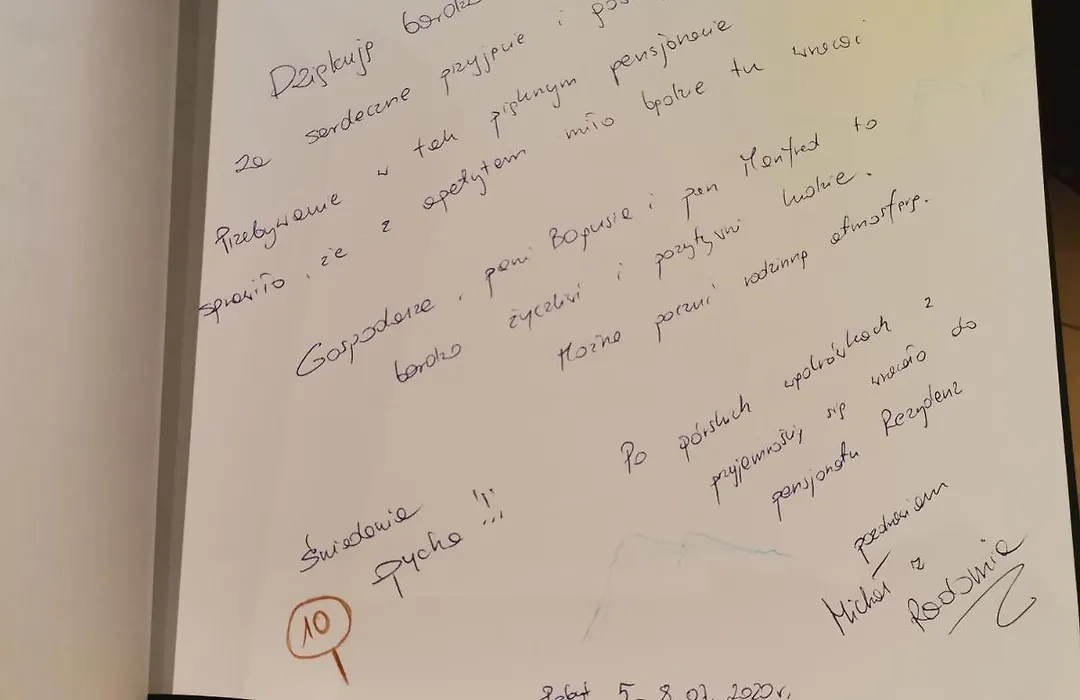 Dziękuję bardzo
za serdeczne przyjęcie i
Przebywanie w tak pięknym pensjonacie
sprawiło, że z apetytem miło będzie tu wracać
Gospodarze, pani Bogusia i pan Manfred to
bardzo życzliwi i pozytywni ludzie.
Można poczuć rodzinną atmosferę.
Po górskich wędrówkach z
przyjemnością się wracało do
pensjonatu Rezydenz
Śniadania
Pycha!!!
10
pozdrawiam
Michał z
Radomia
Pobyt 5-8.07.2020r.